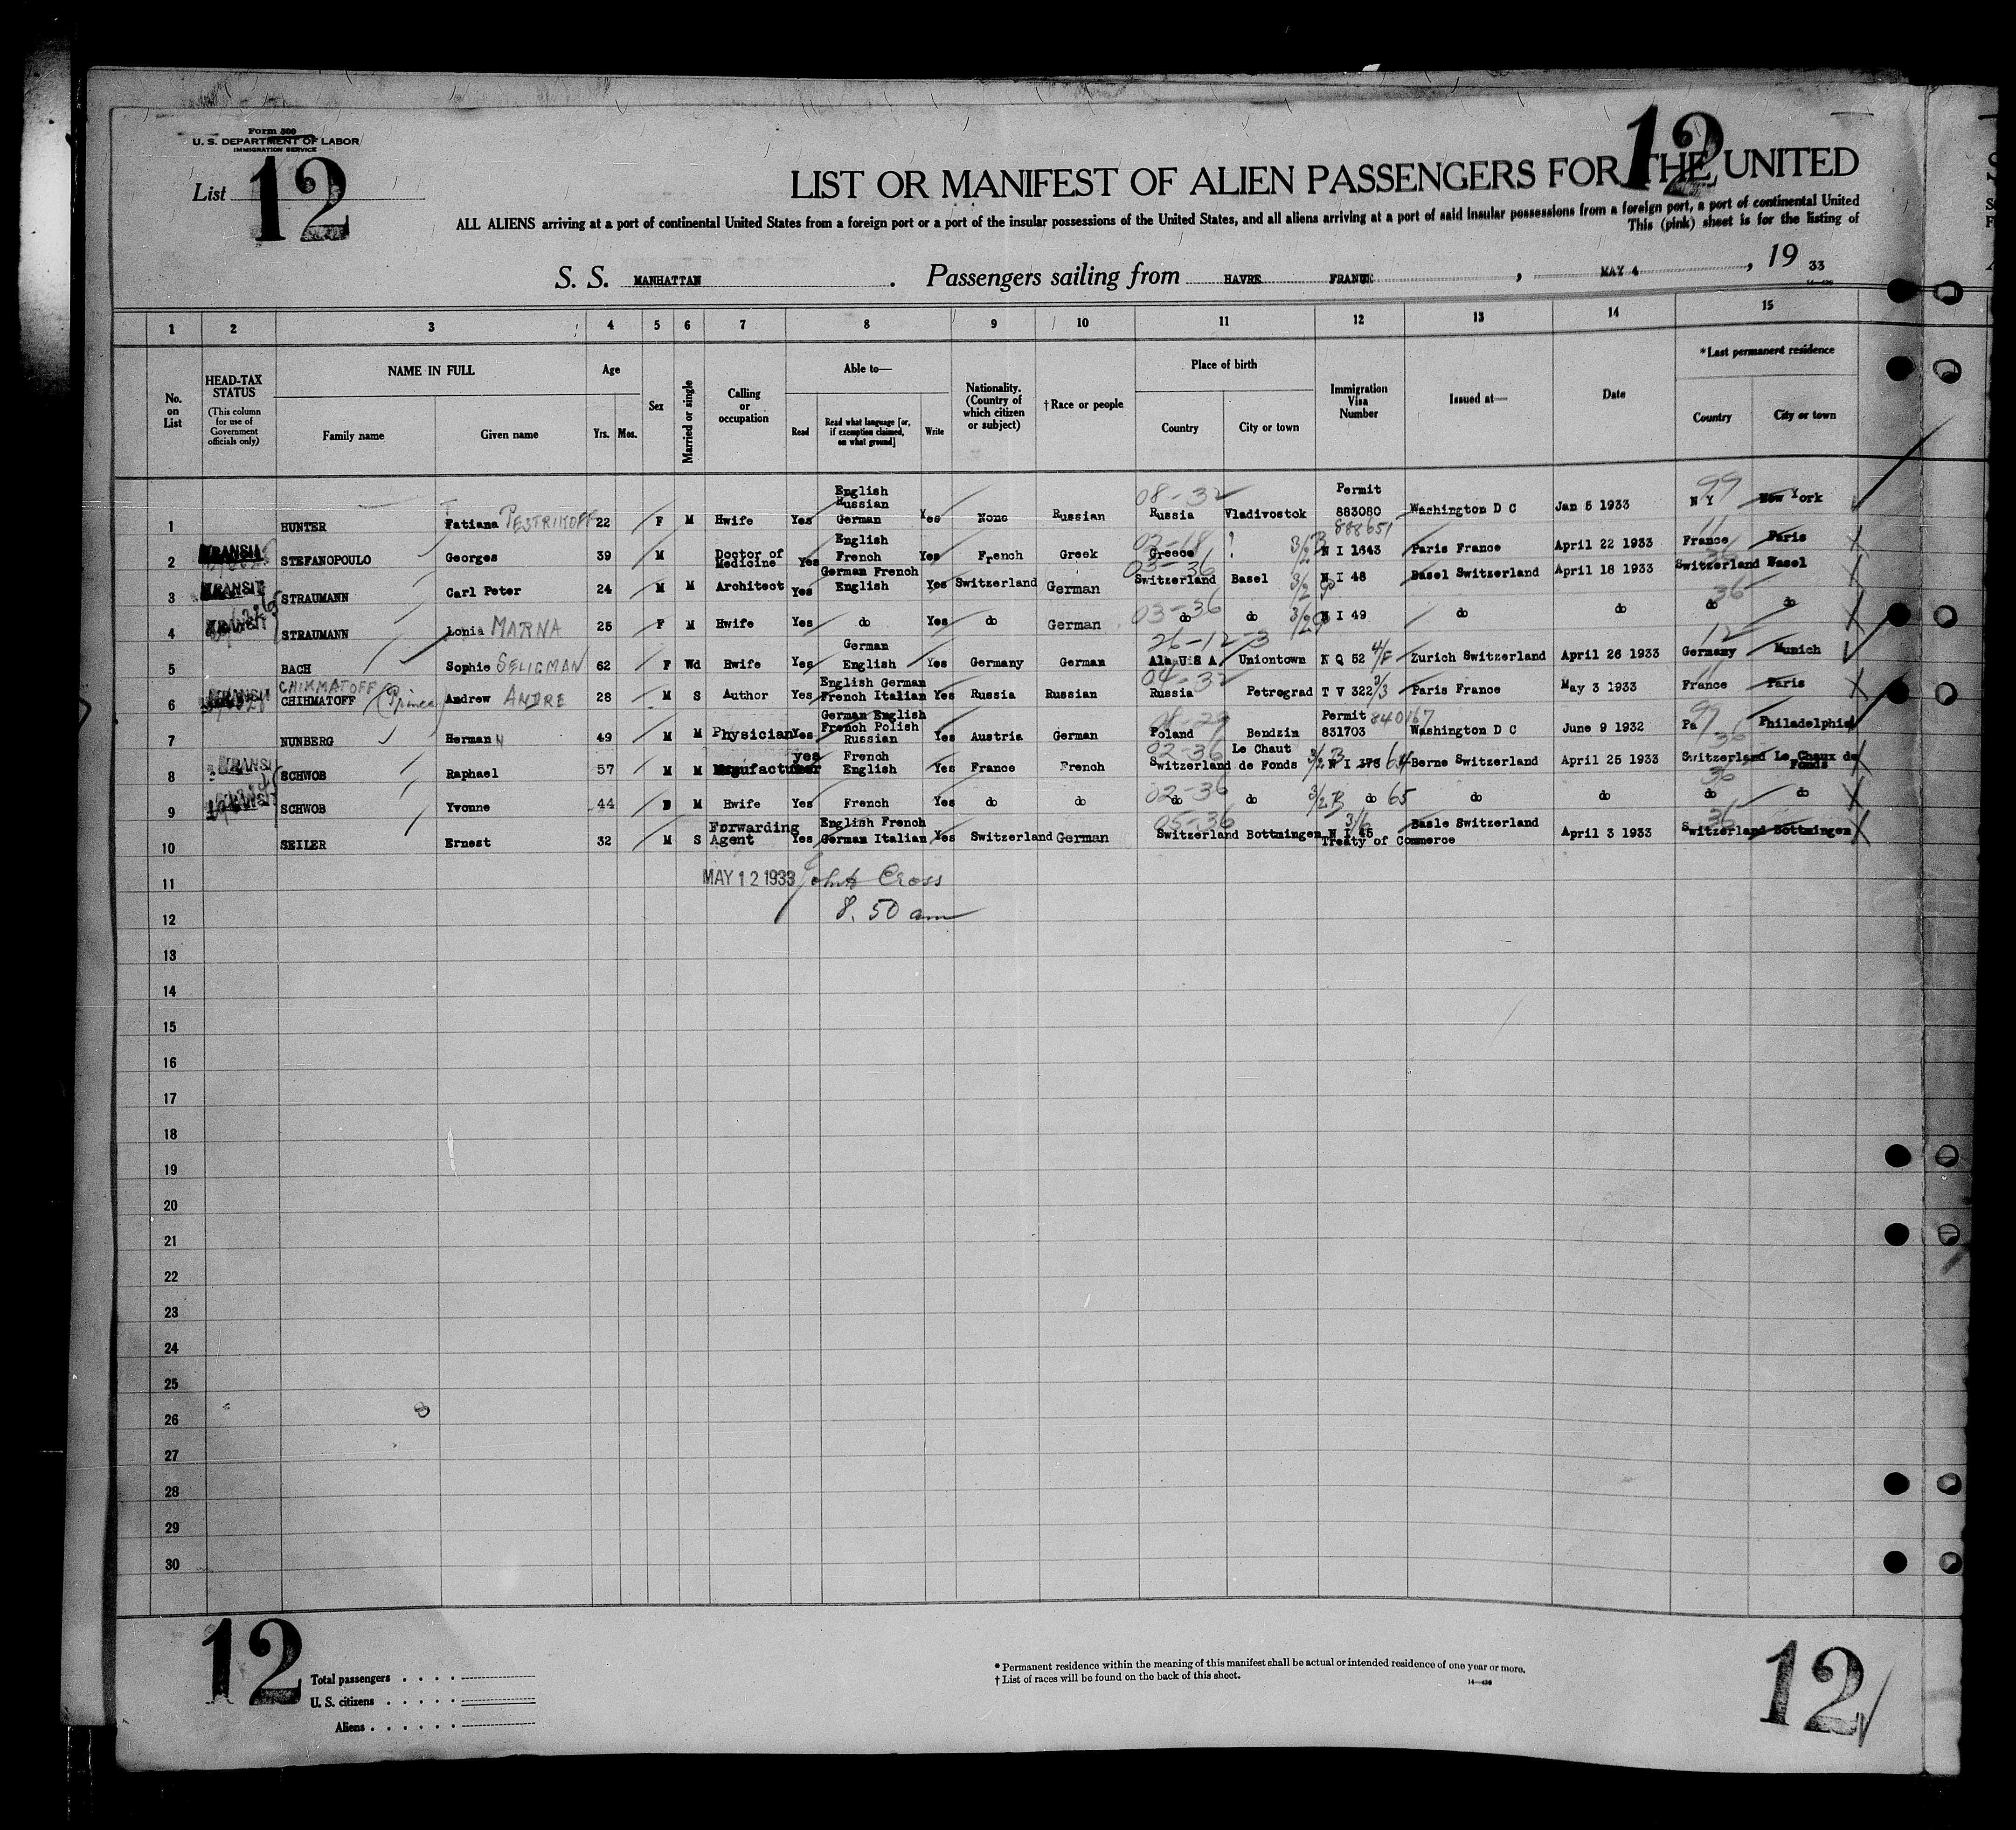 Form 500
U. S. DEPARTMENT OF LABOR
IMMIGRATION SERVICE
List 12
12
LIST OR MANIFEST OF ALIEN PASSENGERS FOR THE UNITED
ALL ALIENS arriving at a port of continental United States from a foreign port or a port of the insular possessions of the United States, and all aliens arriving at a port of said insular possessions from a foreign port, a port of continental United
This (pink) sheet is for the listing of
S. S. MANHATTAN . Passengers sailing from HAVRE FRANCE , MAY 4 , 19 33
1 2 3 4 5 6 7 8 9 10 11 12 13 14 15
No. on List
HEAD-TAX STATUS (This column for use of Government officials only)
NAME IN FULL
Family name Given name
Age Yrs. Mos.
Sex
Married or single
Calling or occupation
Able to—
Read Read what language [or, if exemption claimed, on what ground] Write
Nationality. (Country of which citizen or subject)
†Race or people
Place of birth
Country City or town
Immigration Visa Number
Issued at—
Date
*Last permanent residence
Country City or town
1 HUNTER Tatiana PESTRIKOFF 22 F M Hwife Yes English Russian German Yes None Russian 08-32 Russia Vladivostok Permit 883080 888651 Washington D C Jan 5 1933 99 N Y New York
2 TRANSIT STEFANOPOULO Georges 39 M Doctor of Medicine Yes English French Yes French Greek Greece ? 3/2 B N I 1643 Paris France April 22 1933 France Paris
3 TRANSIT STRAUMANN Carl Peter 24 M M Architect Yes German French English Yes Switzerland German 03-36 Switzerland Basel 3/2 N I 48 Basel Switzerland April 18 1933 36 Switzerland Basel
4 TRANSIT STRAUMANN Lonia MARNA 25 F M Hwife Yes do Yes do German 03-36 do do 3/2 N I 49 do do 36 do do
5 BACH Sophie SELIGMAN 62 F Wd Hwife Yes German English Yes Germany German 26-12-3 Ala U S A Uniontown N Q 52 4/F Zurich Switzerland April 26 1933 12 Germany Munich
6 TRANSIT CHIKMATOFF CHIHMATOFF (Prince) Andrew ANDRE 28 M S Author Yes English German French Italian Yes Russia Russian 04-32 Russia Petrograd T V 322 3/3 Paris France May 3 1933 11 France Paris
7 NUNBERG Herman N 49 M M Physician Yes German English French Polish Russian Yes Austria German 08-29 Poland Bendzin Permit 840167 831703 Washington D C June 9 1932 99 Pa Philadelphia
8 TRANSIT SCHWOB Raphael 57 M M Manufacturer yes French English Yes France French 02-36 Switzerland Le Chaut de Fonds 3/2 B N I 378 64 Berne Switzerland April 25 1933 36 Switzerland Le Chaux de Fonds
9 TRANSIT SCHWOB Yvonne 44 M Hwife Yes French Yes do do 02-36 do do 3/2 B do 65 do do 36 do do
10 SEILER Ernest 32 M S Forwarding Agent Yes English French German Italian Yes Switzerland German 05-36 Switzerland Bottmingen 3/6 N I 45 Treaty of Commerce Basle Switzerland April 3 1933 36 Switzerland Bottmingen
11 MAY 12 1933 Cross
12 8.50 am
13
14
15
16
17
18
19
20
21
22
23
24
25
26
27
28
29
30
12
Total passengers . . . .
U. S. citizens . . . . .
Aliens . . . . . .
* Permanent residence within the meaning of this manifest shall be actual or intended residence of one year or more.
† List of races will be found on the back of this sheet.
14—430
12